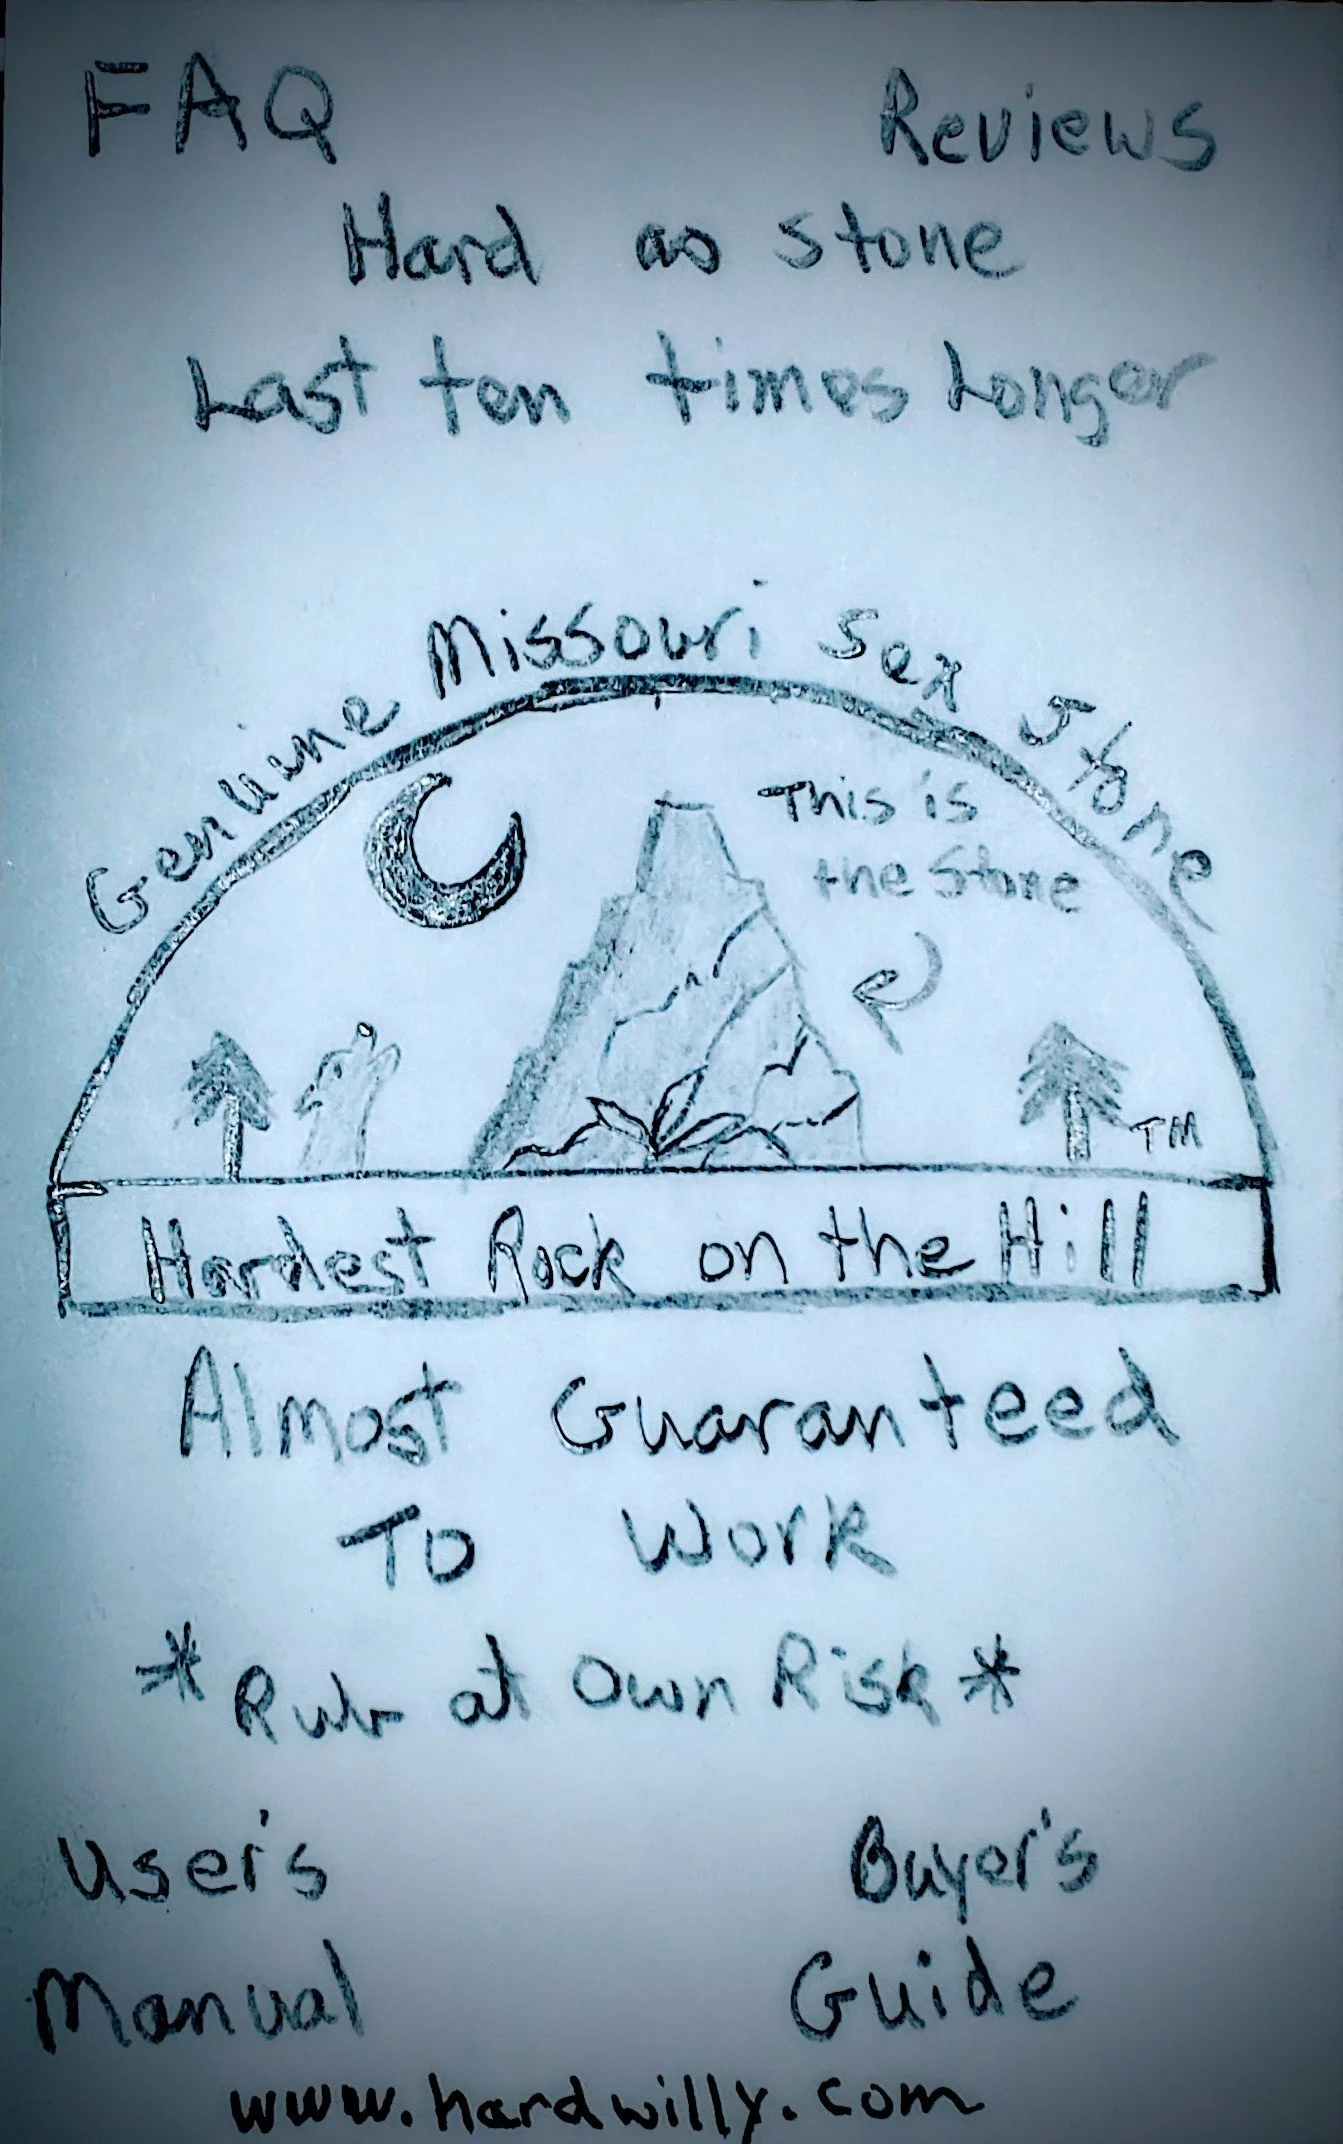 FAQ Reviews
Hard as stone
Last ten times Longer
Genuine Missouri Sex Stone
This is
the Stone
TM
Hardest Rock on the Hill
Almost Guaranteed
To Work
*Rub at Own Risk*
User's Buyer's
Manual Guide
www.hardwilly.com